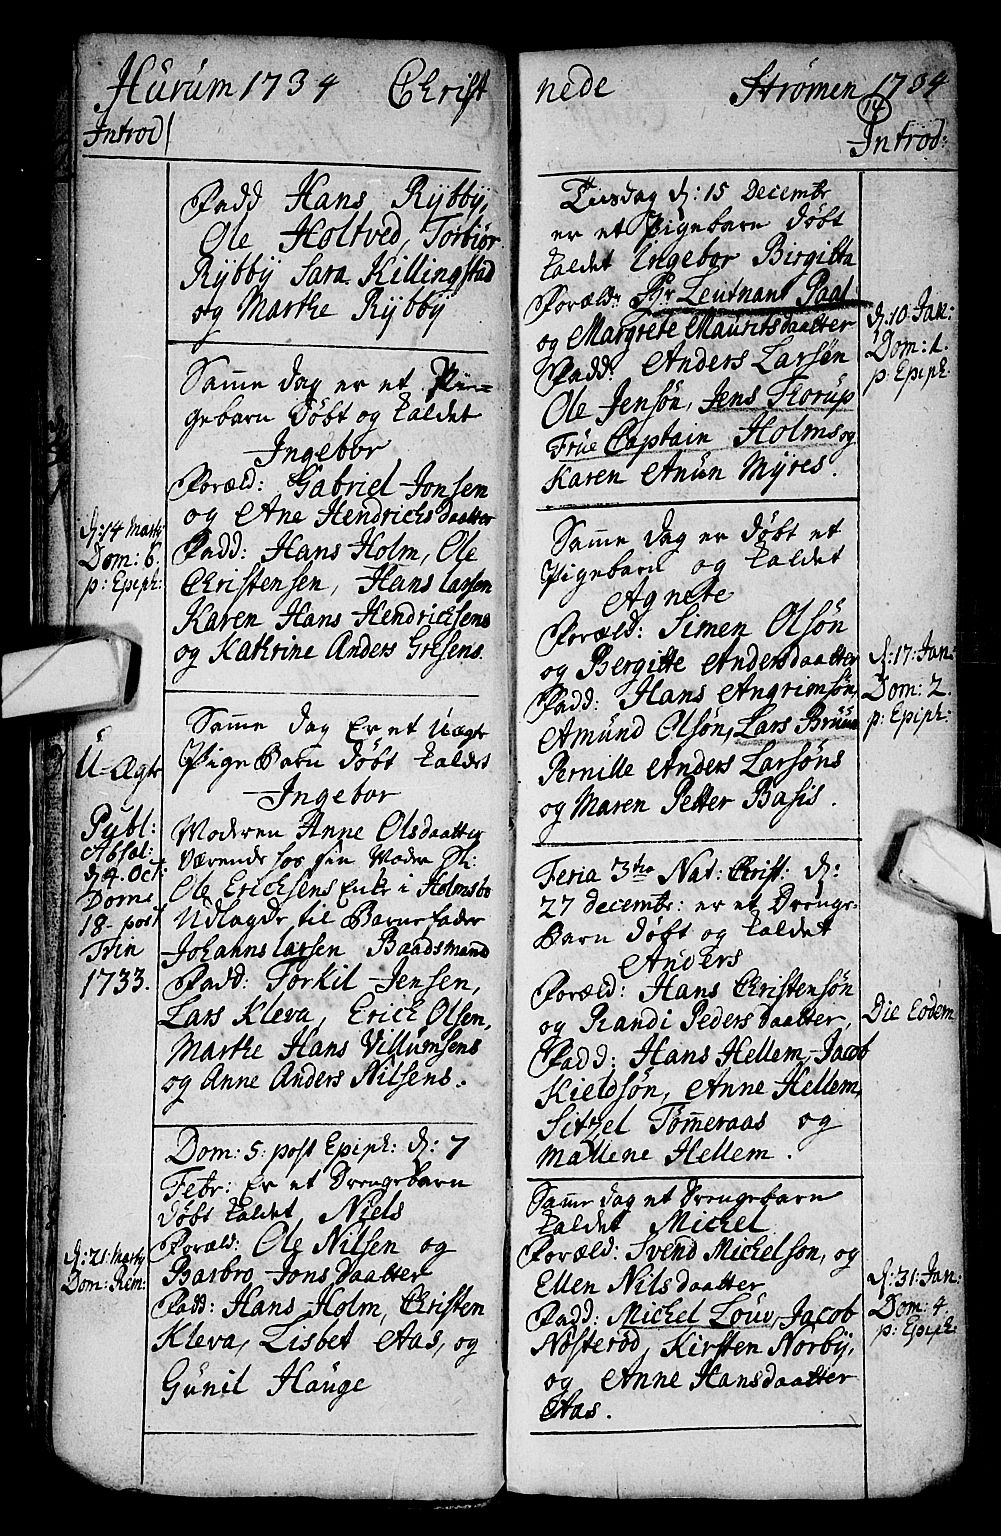 Hurum 1734 Christ
Introd
Fadd Hans Rÿbbÿ,
Ole Holtved, Torbiør
Rÿbbÿ Sara Killingstad
og Marthe Rÿbbÿ
Samme dag er et Pi-
gebarn døbt og kaldet
Ingebor
Foræld: Gabriel Jonsen
og Ane Hendrichsdaatter
Fadd: Hans Holm, Ole
Christensen, Hans Larsen
Karen Hans Hendrichsens
og Kathrine Anders Gresens.
d: 14 Marty
Dom: 6.
p: Epiph:
Samme dag Er et Uægte
Pige Barn døbt kaldet
Ingebor
Moderen Anne Olsdaatter
Værende hos sin Moder Sl:
Ole Ericksens Enke i Holmsbo
Udlagde til Barnefader
Johanns Larsen Baadsmand
Fadd: Torkil Jensen,
Lars Kleva, Erick Olsen,
Marthe Hans Villumsens
og Anne Anders Nilsens.
U-Ægte
Publ:
Absol:
d 4. Oct:
Dom:
18. post
Trin
1733.
Dom: 5. post Epiph: d: 7
Febr: Er et Drengebarn
døbt kaldet Niels
Foræld: Ole Nilsen og
Barbro Jonsdaatter
Fadd: Hans Holm, Christen
Kleva, Lisbet Aas, og
Gunil Hauge
d: 21: Marty
Dom: Rem:
nede Strømen 1734
14
Introd:
Tiisdag d: 15 Decembr
er et Pigebarn døbt
kaldet Ingebor Birgitta
Foræld: Hr Leutnant Paal
og Margrete Mauritsdaatter
Fadd: Anders Larsøn
Ole Jensøn, Jens Torup
Frue Captain Holms og
Karen Anun Mÿres.
d: 10 Jan:
Dom: 1.
p: Epiph:
Samme dag er døbt et
Pigebarn og kaldet
Agnete
Foræld: Simen Olsøn
og Bergitte Andersdaatter
Fadd: Hans Angrimsøn,
Amund Olsøn, Lars Bruun
Pernille Anders Larsøns
og Maren Petter Basis.
d: 17: Jan:
Dom: 2.
p: Epiph:
Feria 3tia Nat: Christ: d:
27 decembr: er et Drenge-
Barn døbt og kaldet
Anders
Foræld: Hans Christensøn
og Randi Pedersdaatter,
Fadd: Hans Hellem, Jacob
Kieldsøn, Anne Hellem,
Sitzel Tømmeraas og
Mallene Hellem.
Die Eodem
Samme dag et Drengebarn
kaldet Michel
Foræld: Svend Michelsøn, og
Ellen Nilsdaatter
Fadd: Michel Louv, Jacob
Nøsterod, Kirsten Norbÿ,
og Anne Hansdaatter
Aas.
d: 31: Jan:
Dom: 4.
p: Epiph: